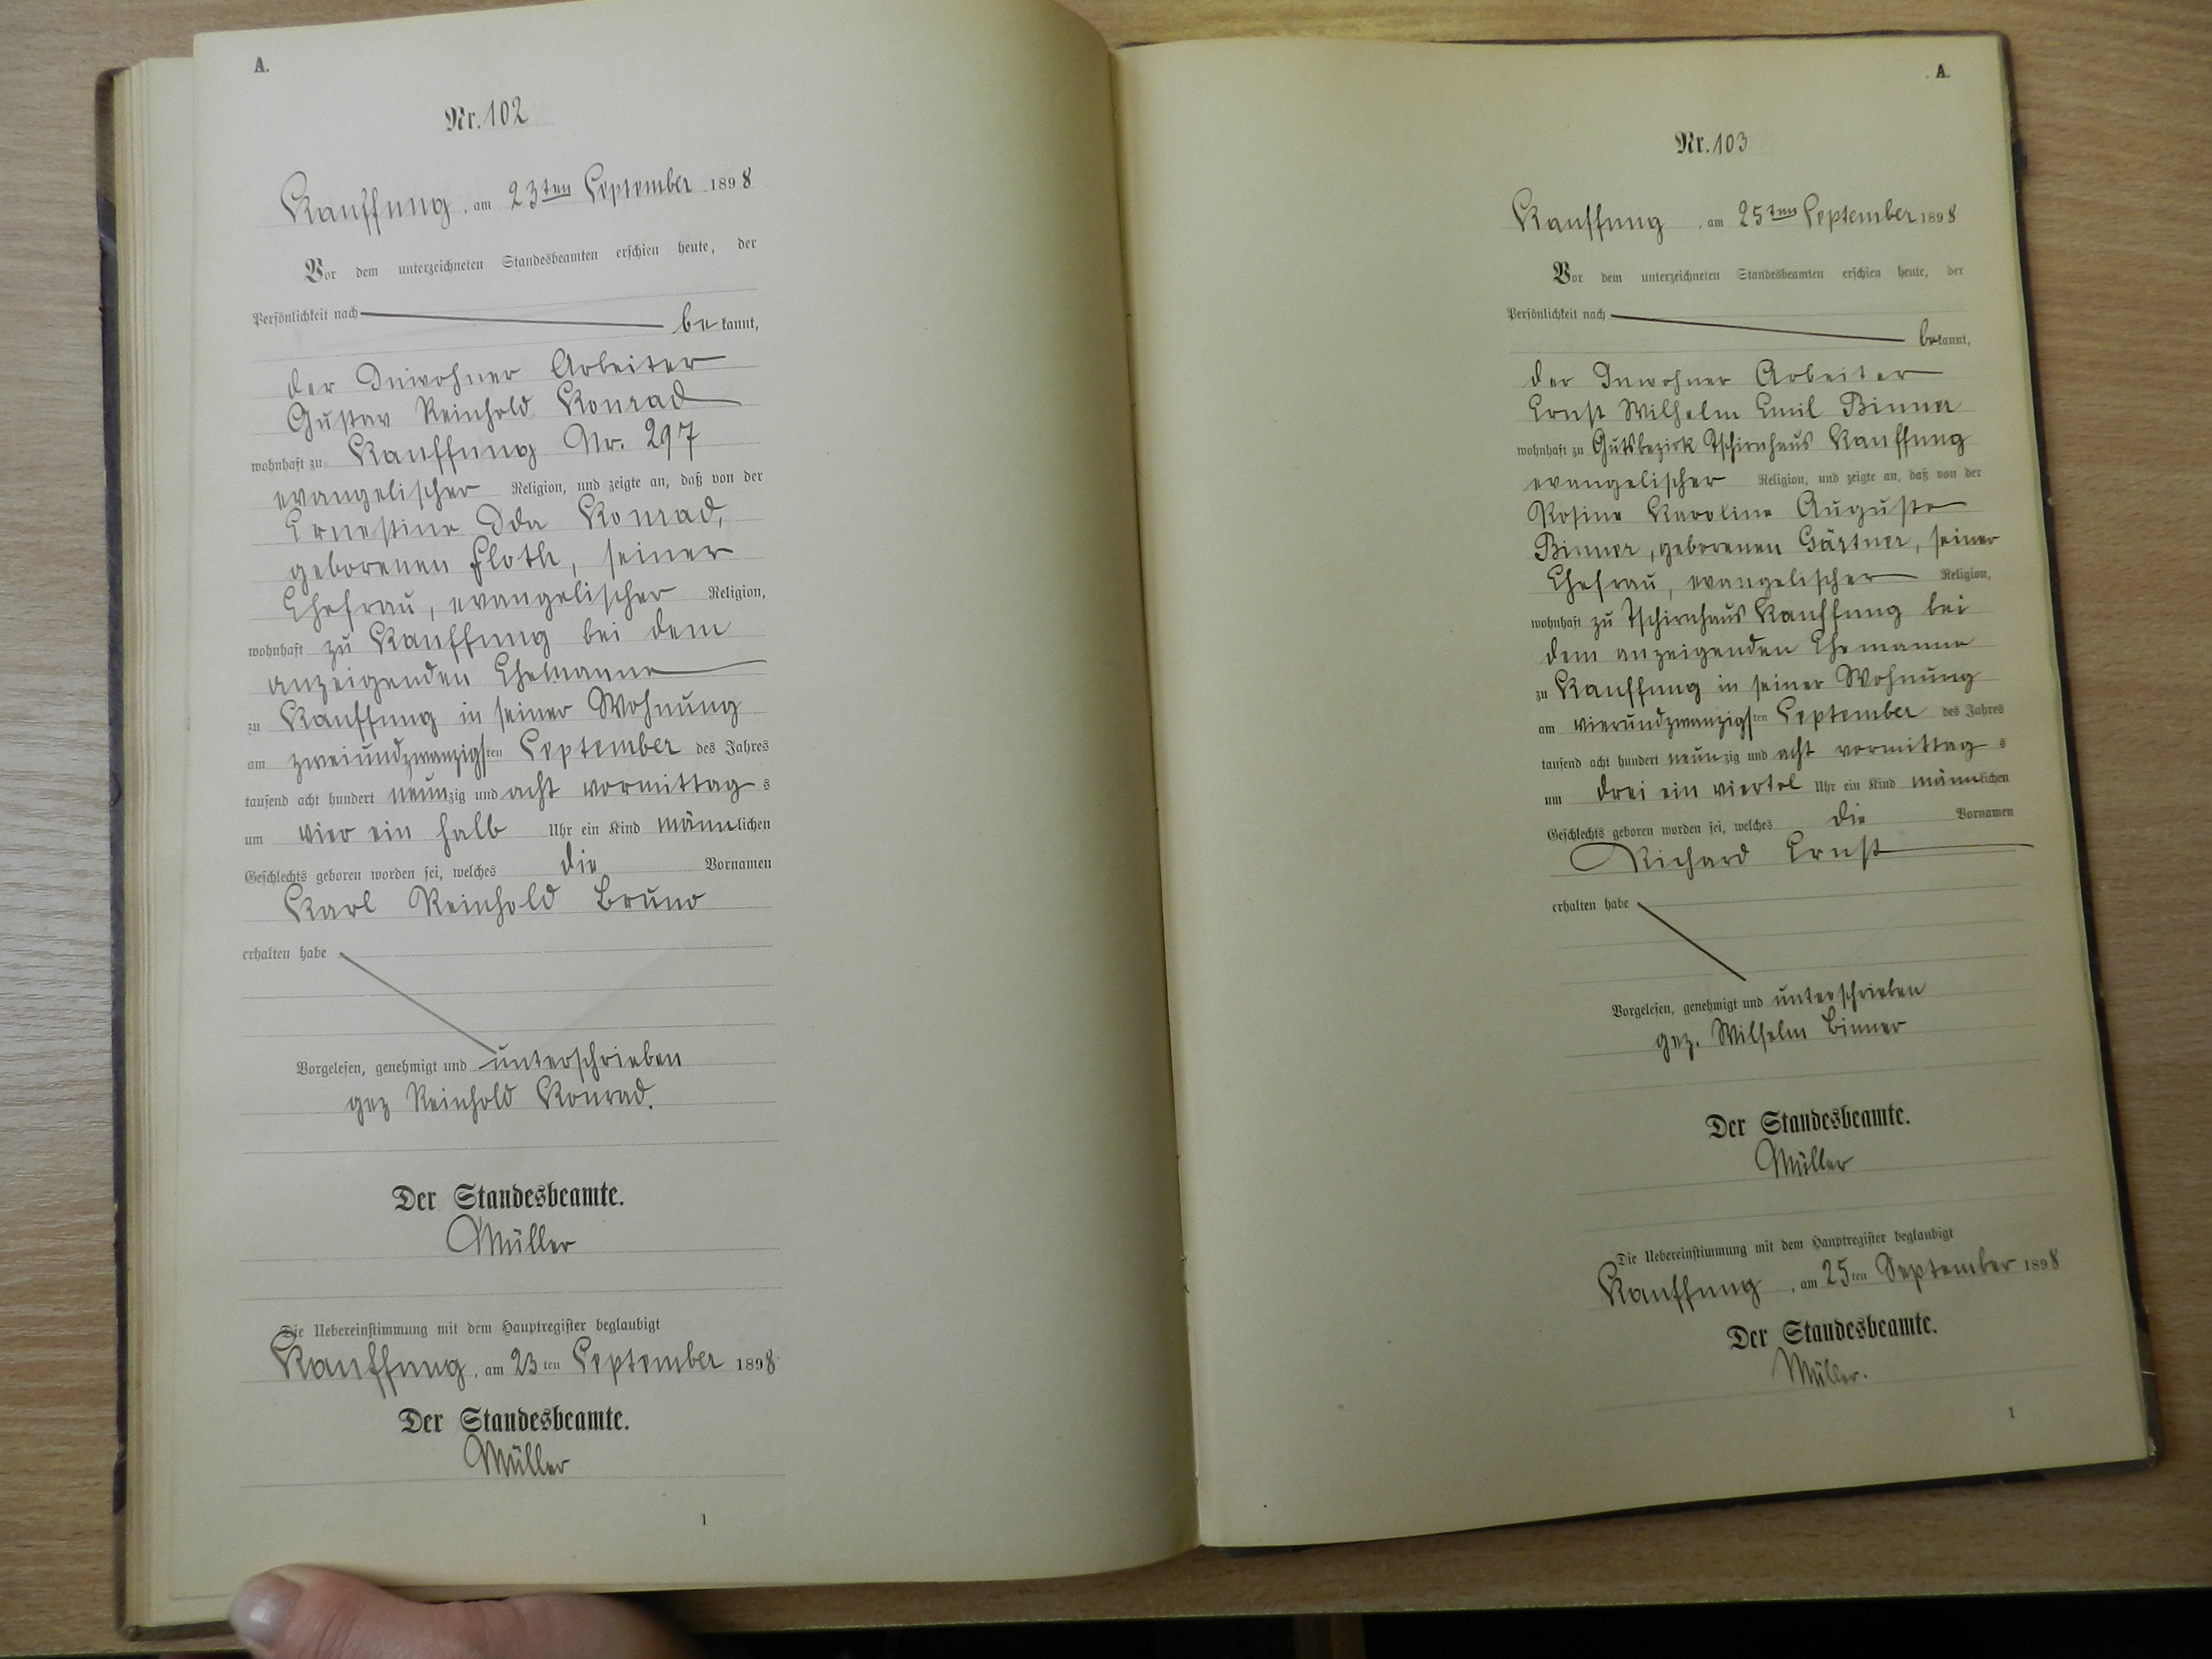 A.
Nr. 102
Kauffung, am 23ten September 1898
Vor dem unterzeichneten Standesbeamten erschien heute, der
Persönlichkeit nach
bekannt,
der Inwohner Arbeiter
Gustav Reinhold Konrad
wohnhaft zu Kauffung Nr. 297
evangelischer Religion, und zeigte an, daß von der
Ernestine Ida Konrad,
geborenen Floth, seiner
Ehefrau, evangelischer Religion,
wohnhaft zu Kauffung bei dem
anzeigenden Ehemanne
zu Kauffung in seiner Wohnung
am zweiundzwanzigsten September des Jahres
tausend acht hundert neunzig und acht vormittags
um vier ein halb Uhr ein Kind männlichen
Geschlechts geboren worden sei, welches die Vornamen
Karl Reinhold Bruno
erhalten habe
Vorgelesen, genehmigt und unterschrieben
gez Reinhold Konrad.
Der Standesbeamte.
Müller
Die Uebereinstimmung mit dem Hauptregister beglaubigt
Kauffung, am 23ten September 1898
Der Standesbeamte.
Müller
1
A.
Nr. 103
Kauffung, am 25ten September 1898
Vor dem unterzeichneten Standesbeamten erschien heute, der
Persönlichkeit nach
bekannt,
der Inwohner Arbeiter
Ernst Wilhelm Emil Binner
wohnhaft zu Gutsbezirk Tschirnhaus Kauffung
evangelischer Religion, und zeigte an, daß von der
Rosine Karoline Auguste
Binner, geborenen Gärtner, seiner
Ehefrau, evangelischer Religion,
wohnhaft zu Tschirnhaus Kauffung bei
dem anzeigenden Ehemanne
zu Kauffung in seiner Wohnung
am vierundzwanzigsten September des Jahres
tausend acht hundert neunzig und acht vormittags
um drei ein viertel Uhr ein Kind männlichen
Geschlechts geboren worden sei, welches die Vornamen
Richard Ernst
erhalten habe
Vorgelesen, genehmigt und unterschrieben
gez. Wilhelm Binner
Der Standesbeamte.
Müller
Die Uebereinstimmung mit dem Hauptregister beglaubigt
Kauffung, am 25ten September 1898
Der Standesbeamte.
Müller.
1